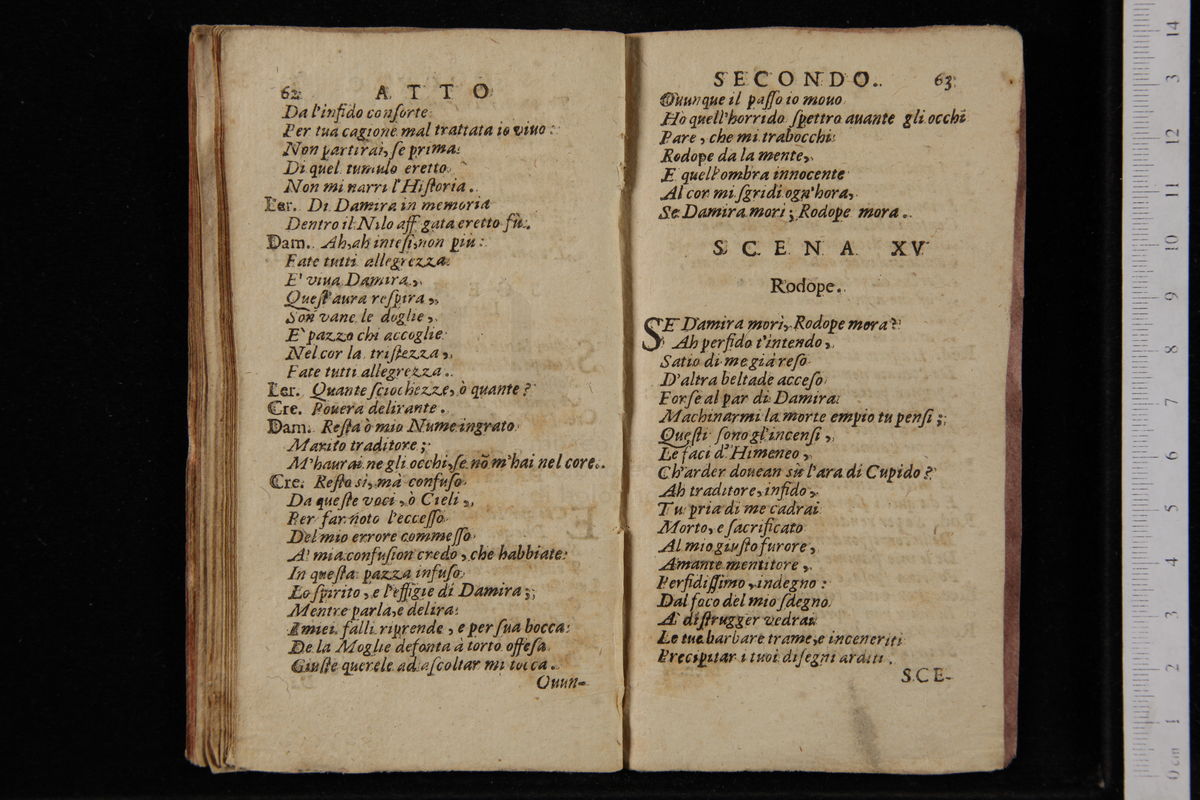 62 ATTO
Da l'infido consorte
Per tua cagione mal trattata io viuo:
Non partirai, se prima
Di quel tumulo eretto
Non mi narri l'Historia.
Ler. Di Damira in memoria
Dentro il Nilo aff gata eretto fù.
Dam. Ah, ah intesi, non più:
Fate tutti allegrezza
E' viua Damira,
Quest'aura respira,
Son vane le doglie,
E' pazzo chi accoglie
Nel cor la tristezza,
Fate tutti allegrezza.
Ler. Quante sciochezze, ò quante?
Cre. Pouera delirante.
Dam. Resta ò mio Nume ingrato
Marito traditore;
M'haurai ne gli occhi, se nõ m'hai nel core.
Cre. Resto si, mà confuso
Da queste voci, ò Cieli,
Per far noto l'eccesso
Del mio errore commesso
A' mia confusion credo, che habbiate
In questa pazza infuso
Lo spirito, e l'effigie di Damira;
Mentre parla, e delira
I miei falli riprende, e per sua bocca
De la Moglie defonta à torto offesa
Giuste querele ad ascoltar mi tocca.
Ouun-
SECONDO. 63
Ouunque il passo io mouo
Ho quell'horrido spettro auante gli occhi
Pare, che mi trabocchi
Rodope da la mente,
E quell'ombra innocente
Al cor mi sgridi ogn'hora,
Se Damira mori; Rodope mora.
SCENA XV
Rodope.
SE Damira mori, Rodope mora?
Ah perfido t'intendo,
Satio di me già reso
D'altra beltade acceso
Forse al par di Damira
Machinarmi la morte empio tu pensi;
Questi sono gl'incensi,
Le faci d'Himeneo,
Ch'arder douean sù l'ara di Cupido?
Ah traditore, infido,
Tu pria di me cadrai
Morto, e sacrificato
Al mio giusto furore,
Amante mentitore,
Perfidissimo, indegno:
Dal foco del mio sdegno
A' distrugger vedrai
Le tue barbare trame, e inceneriti
Precipitar i tuoi disegni arditi.
SCE-